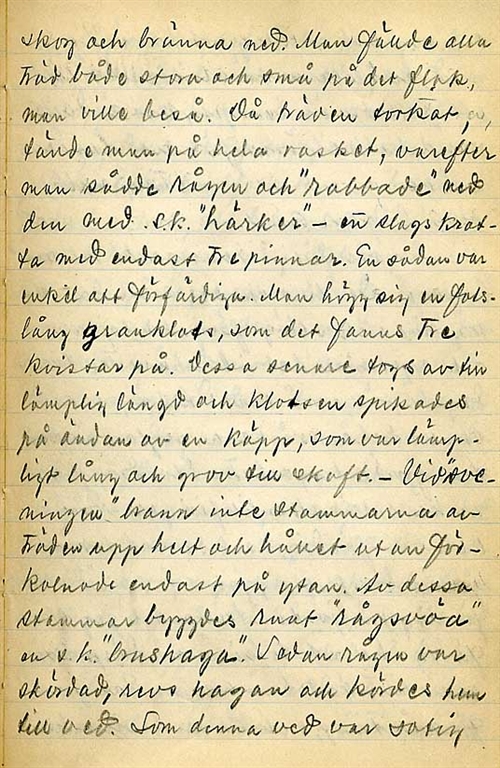 skog och bränna ned. Man fällde alla
träd både stora och små på det flåk,
man ville beså. Då träden torkat,
tände man på hela rasket, varefter
man sådde rågen och "rabbade" ned
den med s.k. "härker" – en slags krat-
ta med endast tre pinnar. En sådan var
enkel att förfärdiga. Man högg sig en fots-
lång granklots, som det fanns tre
kvistar på. Dessa senare togs av till
lämplig längd och klotsen spikades
på ändan av en käpp, som var lämp-
ligt lång och grov till skaft. – Vid "sve-
ningen" brann inte stammarna av
träden upp helt och hållet utan för-
kolnade endast på ytan. Av dessa
stammar byggdes runt "rågsvöa"
en s.k. "brushaga". Sedan rågen var
skördad, revs hagan och kördes hem
till ved. Som denna ved var sotig